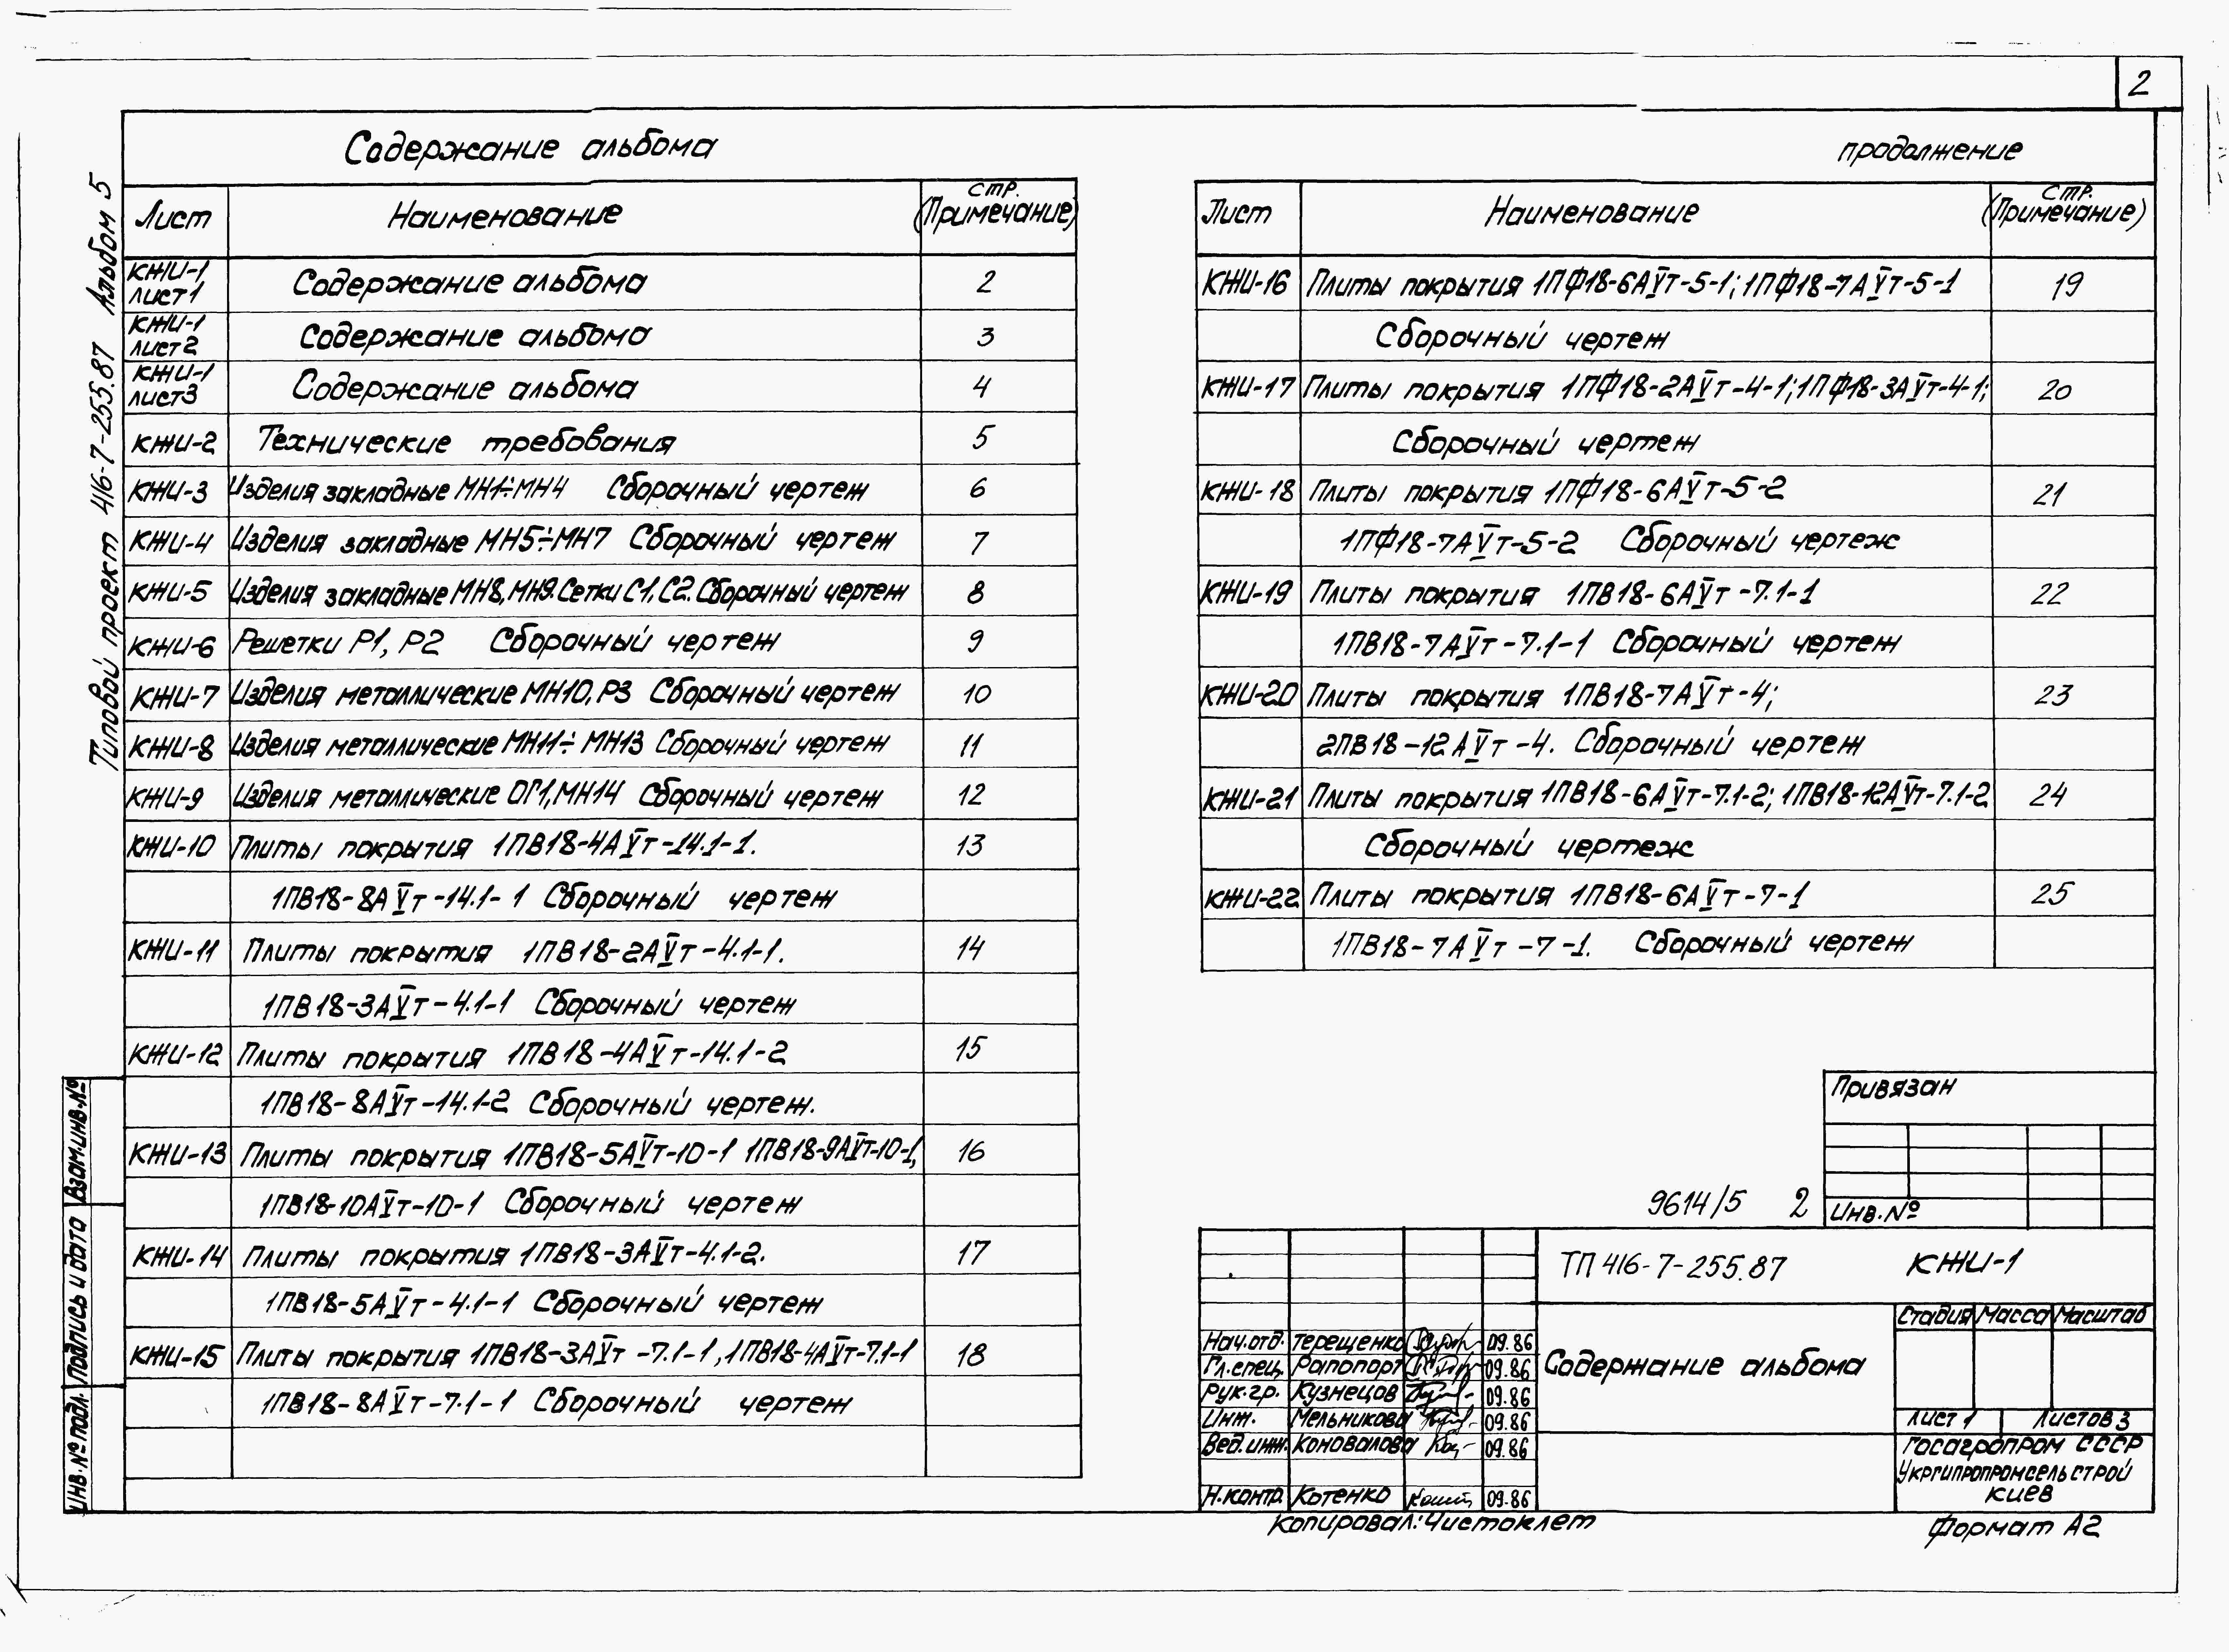 2
Типовой проект 416-7-255.87 Альбом 5
Содержание альбома
Лист Наименование стр. (Примечание)
КЖИ-1 лист1 Содержание альбома 2
КЖИ-1 лист2 Содержание альбома 3
КЖИ-1 лист3 Содержание альбома 4
КЖИ-2 Технические требования 5
КЖИ-3 Изделия закладные МН1÷МН4 Сборочный чертеж 6
КЖИ-4 Изделия закладные МН5÷МН7 Сборочный чертеж 7
КЖИ-5 Изделия закладные МН8, МН9. Сетки С1, С2. Сборочный чертеж 8
КЖИ-6 Решетки Р1, Р2 Сборочный чертеж 9
КЖИ-7 Изделия металлические МН10, Р3 Сборочный чертеж 10
КЖИ-8 Изделия металлические МН11÷МН13 Сборочный чертеж 11
КЖИ-9 Изделия металлические ОГ1, МН14 Сборочный чертеж 12
КЖИ-10 Плиты покрытия 1ПВ18-4АV̅т-14.1-1. 13
1ПВ18-8АV̅т-14.1-1 Сборочный чертеж
КЖИ-11 Плиты покрытия 1ПВ18-2АV̅т-4.1-1. 14
1ПВ18-3АV̅т-4.1-1 Сборочный чертеж
КЖИ-12 Плиты покрытия 1ПВ18-4АV̅т-14.1-2 15
1ПВ18-8АV̅т-14.1-2 Сборочный чертеж.
КЖИ-13 Плиты покрытия 1ПВ18-5АV̅т-10-1 1ПВ18-9АV̅т-10-1, 16
1ПВ18-10АV̅т-10-1 Сборочный чертеж
КЖИ-14 Плиты покрытия 1ПВ18-3АV̅т-4.1-2. 17
1ПВ18-5АV̅т-4.1-1 Сборочный чертеж
КЖИ-15 Плиты покрытия 1ПВ18-3АV̅т-7.1-1, 1ПВ18-4АV̅т-7.1-1 18
1ПВ18-8АV̅т-7.1-1 Сборочный чертеж
продолжение
Лист Наименование стр. (Примечание)
КЖИ-16 Плиты покрытия 1ПФ18-6АV̅т-5-1; 1ПФ18-7АV̅т-5-1 19
Сборочный чертеж
КЖИ-17 Плиты покрытия 1ПФ18-2АV̅т-4-1; 1ПФ18-3АV̅т-4-1; 20
Сборочный чертеж
КЖИ-18 Плиты покрытия 1ПФ18-6АV̅т-5-2 21
1ПФ18-7АV̅т-5-2 Сборочный чертеж
КЖИ-19 Плиты покрытия 1ПВ18-6АV̅т-7.1-1 22
1ПВ18-7АV̅т-7.1-1 Сборочный чертеж
КЖИ-20 Плиты покрытия 1ПВ18-7АV̅т-4; 23
2ПВ18-12АV̅т-4. Сборочный чертеж
КЖИ-21 Плиты покрытия 1ПВ18-6АV̅т-7.1-2; 1ПВ18-12АV̅т-7.1-2 24
Сборочный чертеж
КЖИ-22 Плиты покрытия 1ПВ18-6АV̅т-7-1 25
1ПВ18-7АV̅т-7-1. Сборочный чертеж
Привязан
Инв. №
9614/5 2
ТП 416-7-255.87 КЖИ-1
Содержание альбома
Стадия Масса Масштаб
Лист 1 Листов 3
Госагропром СССР
Укргипропромсельстрой
Киев
Нач.отд. Терещенко 09.86
Гл.спец. Рапопорт 09.86
Рук.гр. Кузнецов 09.86
Инж. Мельникова 09.86
Вед.инж. Коновалова 09.86
Н.контр. Котенко 09.86
Копировал: Чистоклет
Формат А2
Инв. № подл. Подпись и дата Взам.инв.№